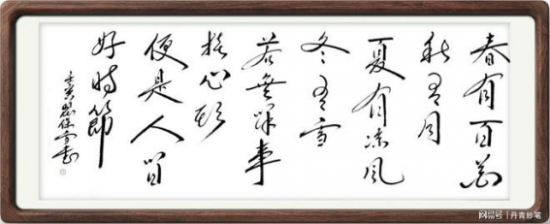 春有百花
秋有月
夏有凉风
冬有雪
若無闲事
挂心头
便是人间
好時節
壬寅
网易号 | 丹青妙笔